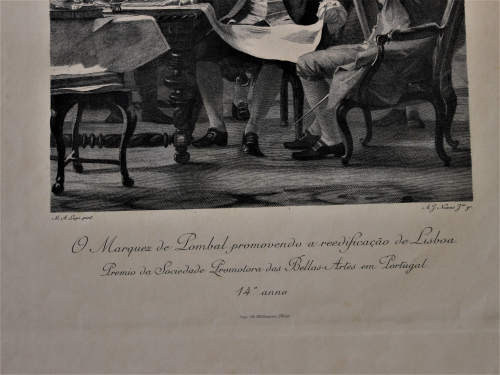 M. A. Lupi pint.
A. J. Nunes Jor. gr.
O Marquez de Pombal promovendo a reedificação de Lisboa
Premio da Sociedade Promotora das Bellas-Artes em Portugal
14.º anno
Paris